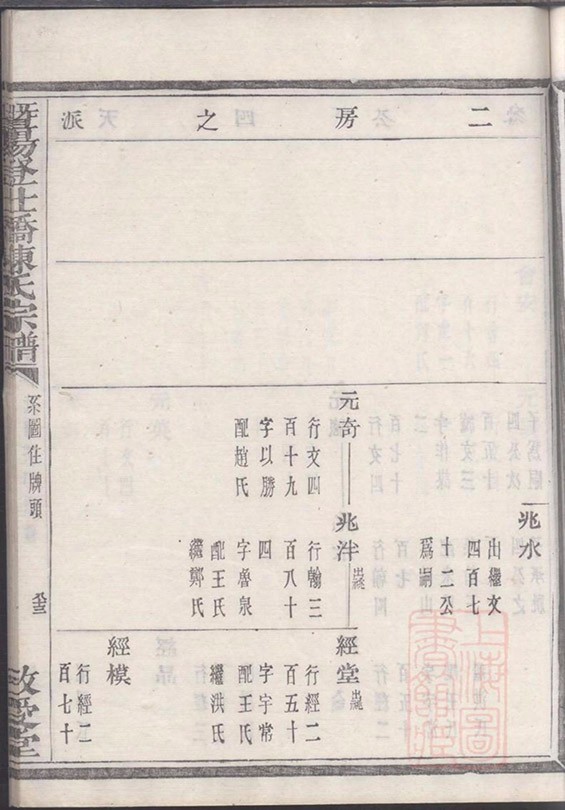 二房之派
兆水
出繼文
四百七
十二公
爲嗣
元奇
行文四
百十九
字以勝
配趙氏
兆泮
行翰三
百八十
四
字魯泉
配王氏
繼鄭氏
經堂
行經二
百五十
字宇常
配王氏
繼洪氏
經模
行經二
百七十
暨陽登仕橋陳氏宗譜
系圖住牌頭
敘愛堂